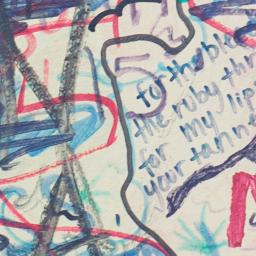 for the bl
the ruby thr
for my lip
your tann